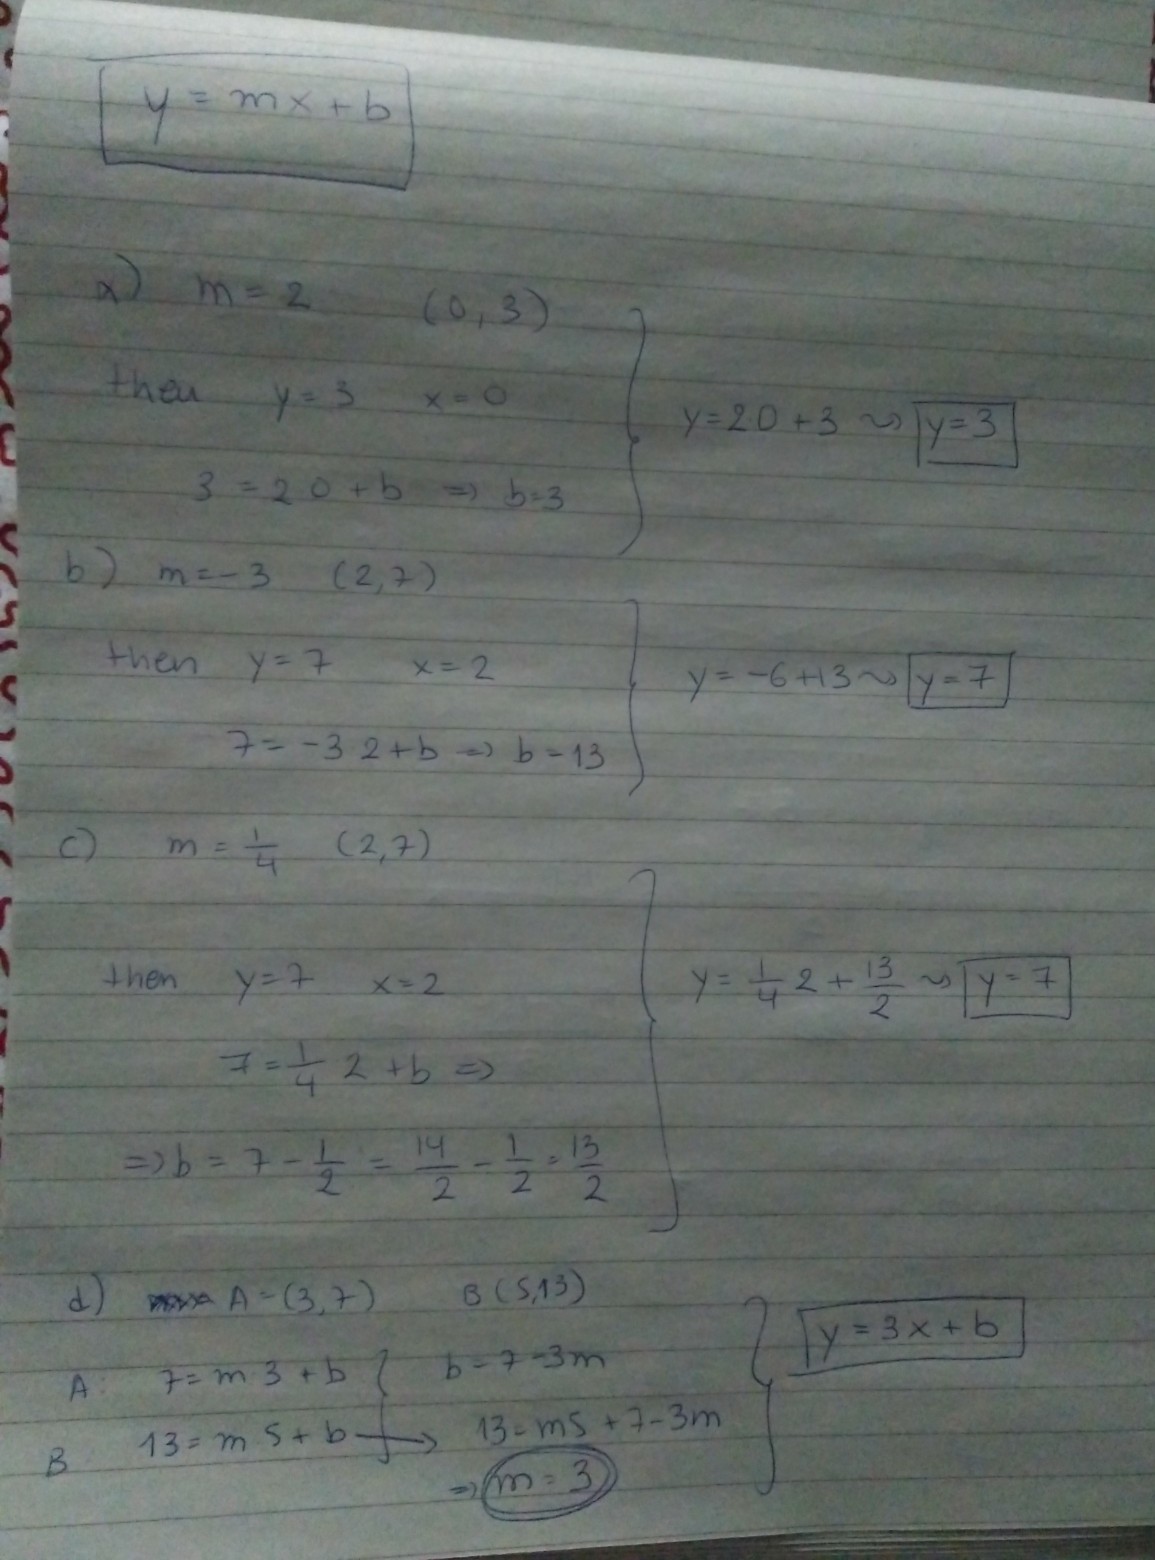 y = mx + b
a) m = 2 (0, 3)
then y = 3 x = 0
3 = 2 0 + b ⇒ b=3
y = 2 0 + 3 ⤳ y = 3
b) m = -3 (2,7)
then y = 7 x = 2
7 = -3 2 + b ⇒ b = 13
y = -6 + 13 ⤳ y = 7
c) m = 1/4 (2,7)
then y = 7 x = 2
7 = 1/4 2 + b ⇒
⇒ b = 7 - 1/2 = 14/2 - 1/2 = 13/2
y = 1/4 2 + 13/2 ⤳ y = 7
d) A = (3,7) B (5,13)
A: 7 = m 3 + b } b = 7 - 3m
B 13 = m 5 + b → 13 = m5 + 7 - 3m
⇒ m = 3
y = 3x + b